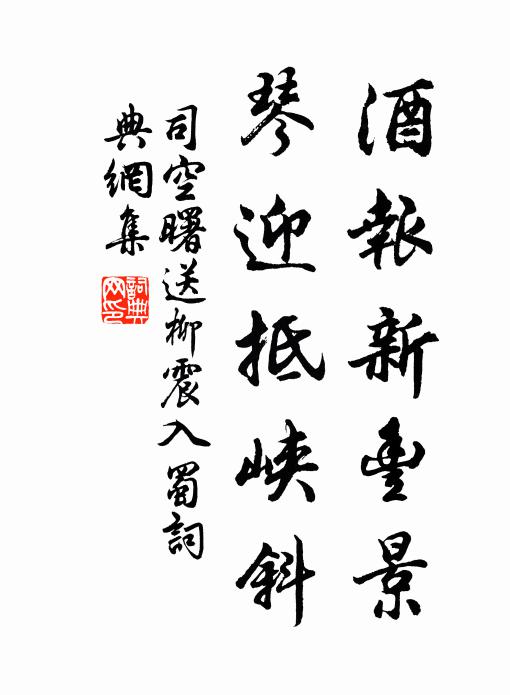 酒報新豐景
琴迎抵峽斜
司空曙送柳震入蜀詞
典網集
詞典网印